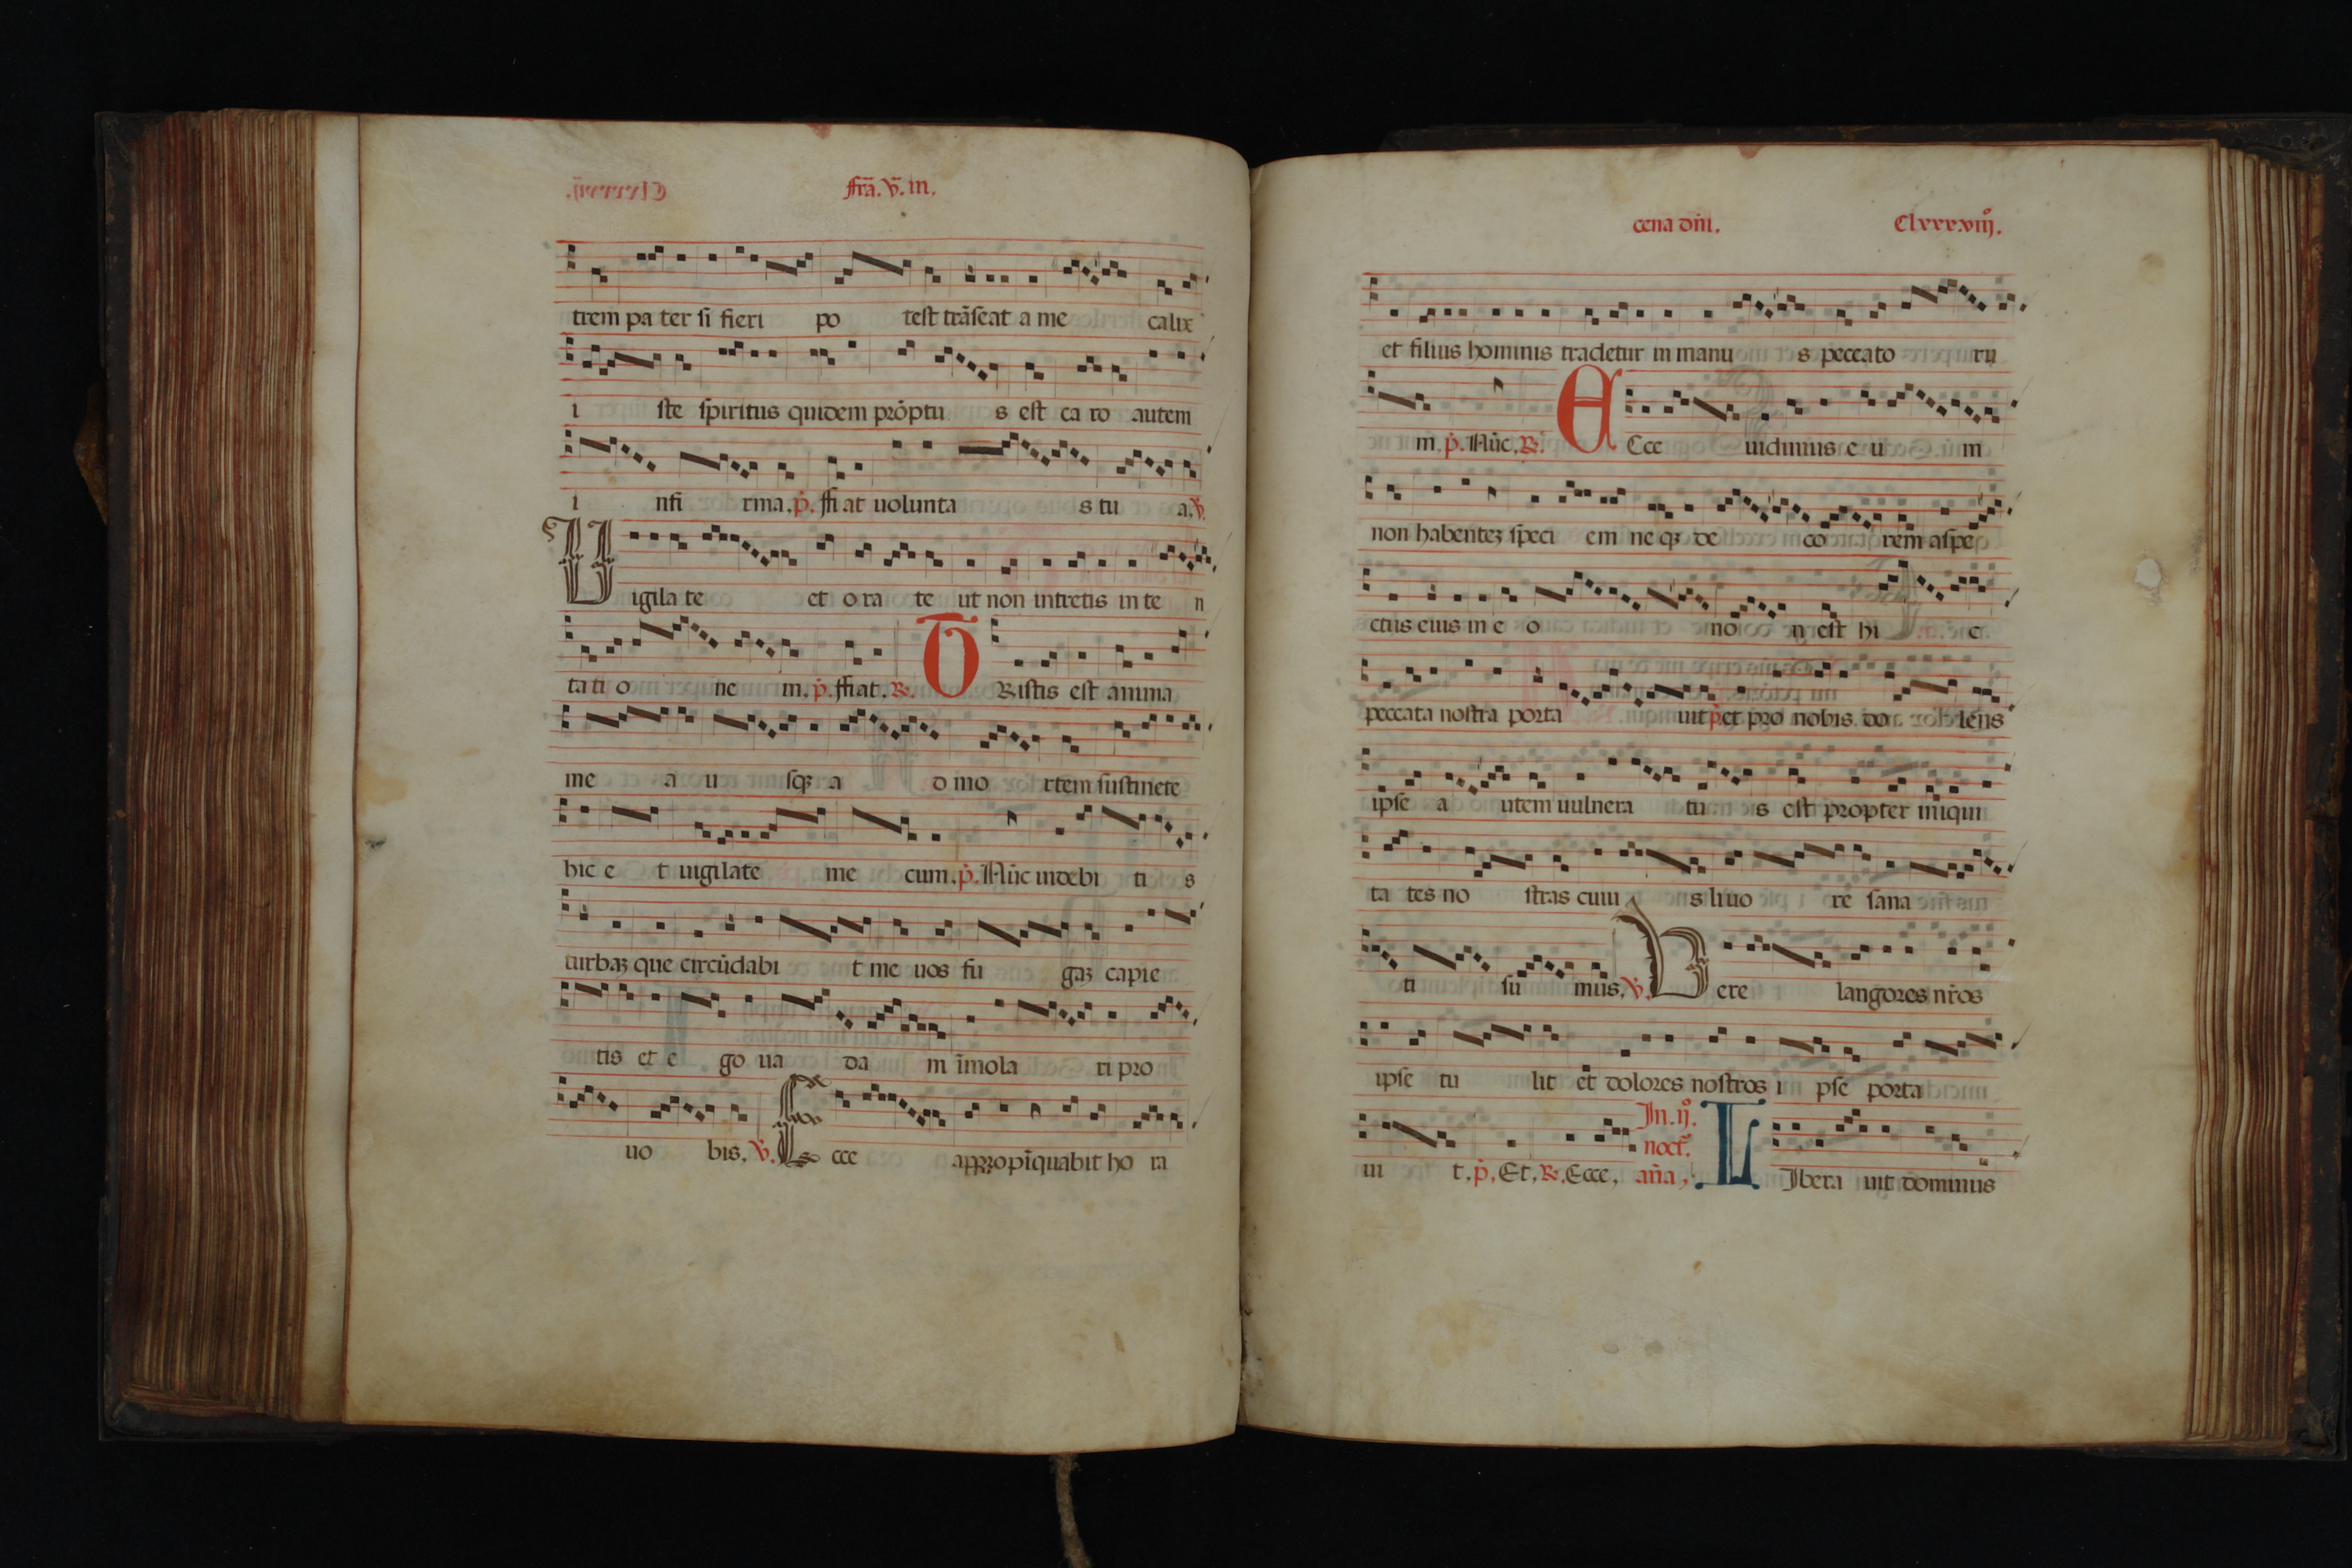 fr̃a. v̄. in.
trem pa ter si fieri po test trãseat a me calix
i ste spiritus quidem prõptu s est ca ro autem
i nfi rma. p̃. ffi at uolunta s tu a. ṽ.
Uigila te et o ra te ut non intretis in te n
ta ti o ne m. p̃. ffiat. R. TRistis est anima
me a u sq3 a d mo rtem sustinete
hic e t uigilate me cum. p̃. Nũc uidebi ti s
turba3 que circũdabi t me uos fu ga3 capie
tis et e go ua da m ĩmola ri pro
uo bis. ṽ. Ecce appropĩquabit ho ra
cena dñi. Clxxxviiȷ̊.
et filius hominis tradetur in manu s peccato ru
m. p̃. Nũc. R. ECce uidimus e u m
non habente3 speci em ne q3 de co rem aspe
ctus eius in e o no n est hi c
peccata nostra porta uit p̃ et pro nobis do lens
ipse a utem uulnera tu s est propter iniqui
ta tes no stras cuiu s liuo re sana
ti su mus. ṽ. Uere langores nr̃os
ipse tu lit et dolores nostros i pse porta
In. ij̊.
noct̃.
ui t. p̃. Et. R. Ecce. añа. LIbera uit dominus